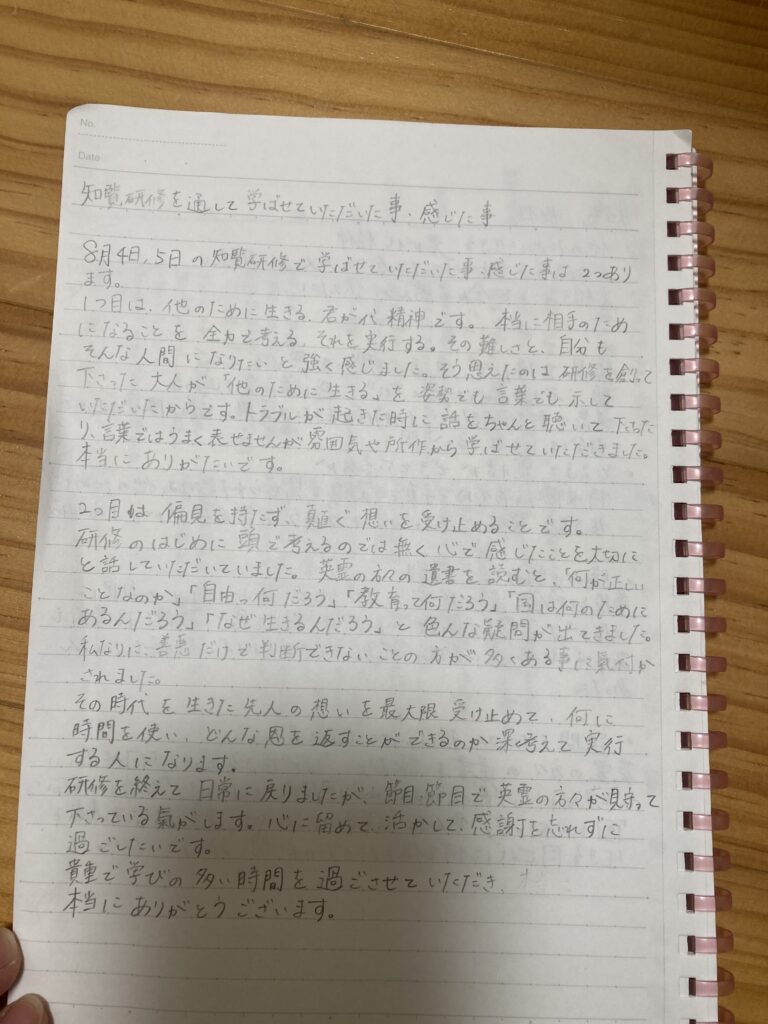 No.
Date
知覧研修を通して学ばせていただいた事、感じた事
8月4日、5日の知覧研修で学ばせていただいた事、感じた事は2つあり
ます。
1つ目は、他のために生きる、君が代精神です。本当に相手のため
になることを全力で考える、それを実行する。その難しさと、自分も
そんな人間になりたいと強く感じました。そう思えたのは研修を創って
下さった大人が「他のために生きる」を姿勢でも言葉でも示して
いただいたからです。トラブルが起きた時に話をちゃんと聴いて下さった
り、言葉ではうまく表せませんが雰囲気や所作から学ばせていただきました。
本当にありがたいです。
2つ目は偏見を持たず、真直ぐ想いを受け止めることです。
研修のはじめに頭で考えるのでは無く心で感じたことを大切に
と話していただいていました。英霊の方々の遺書を読むと、「何が正しい
ことなのか」「自由って何だろう」「教育って何だろう」「国は何のために
あるんだろう」「なぜ生きるんだろう」と色んな疑問が出てきました。
私なりに、善悪だけで判断できないことの方が多くある事に氣付か
されました。
その時代を生きた先人の想いを最大限受け止めて、何に
時間を使い、どんな恩を返すことができるのか深く考えて実行
する人になります。
研修を終えて日常に戻りましたが、節目節目で英霊の方々が見守って
下さっている氣がします。心に留めて、活かして、感謝を忘れずに
過ごしたいです。
貴重で学びの多い時間を過ごさせていただき、
本当にありがとうございます。